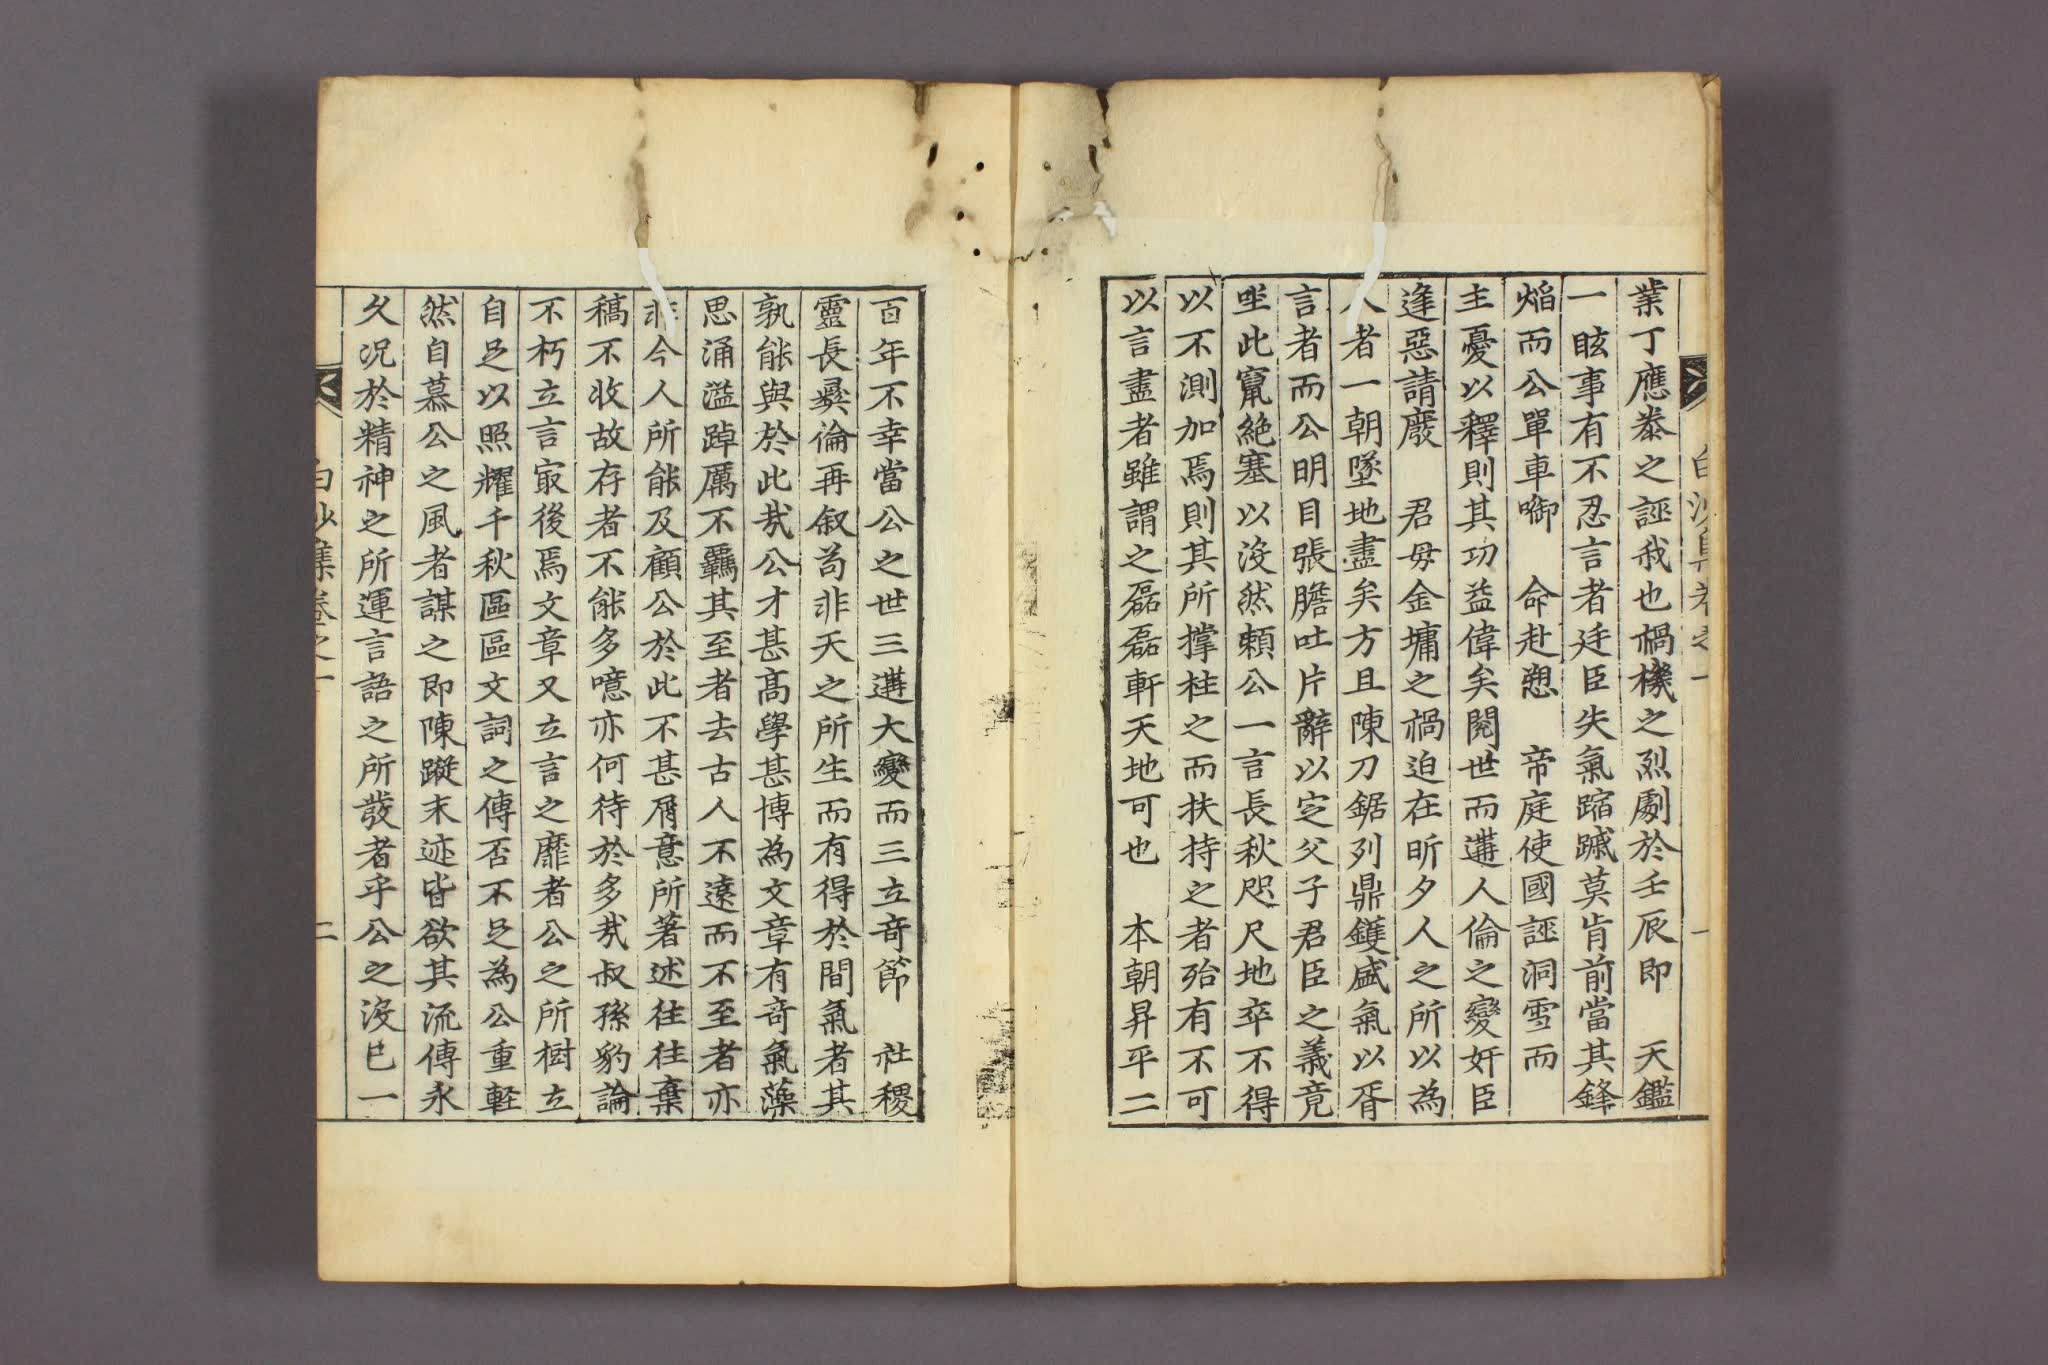 白沙集卷之一
一
業丁應泰之誣我也禍機之烈劇於壬辰即　天鑑
一眩事有不忍言者廷臣失氣蹜蹙莫肯前當其鋒
焰而公單車啣　命赴愬　帝庭使國誣洞雪而
主憂以釋則其功益偉矣閱世而遘人倫之變奸臣
逢惡請廢　君母金墉之禍迫在昕夕人之所以為
人者一朝墜地盡矣方且陳刀鋸列鼎鑊盛氣以胥
言者而公明目張膽吐片辭以定父子君臣之義竟
坐此竄絶塞以沒然賴公一言長秋咫尺地卒不得
以不測加焉則其所撑柱之而扶持之者殆有不可
以言盡者雖謂之磊磊軒天地可也　本朝昇平二
百年不幸當公之世三遘大變而三立奇節　社稷
靈長彜倫再叙茍非天之所生而有得於間氣者其
孰能與於此哉公才甚高學甚博為文章有奇氣藻
思涌溢踔厲不羈其至者去古人不遠而不至者亦
非今人所能及顧公於此不甚屑意所著述往往棄
稿不收故存者不能多噫亦何待於多哉叔孫豹論
不朽立言㝡後焉文章又立言之靡者公之所樹立
自足以照耀千秋區區文詞之傳否不足為公重軽
然自慕公之風者謀之即陳蹤末迹皆欲其流傳永
久況於精神之所運言語之所發者乎公之沒已一
白沙集卷之一
二